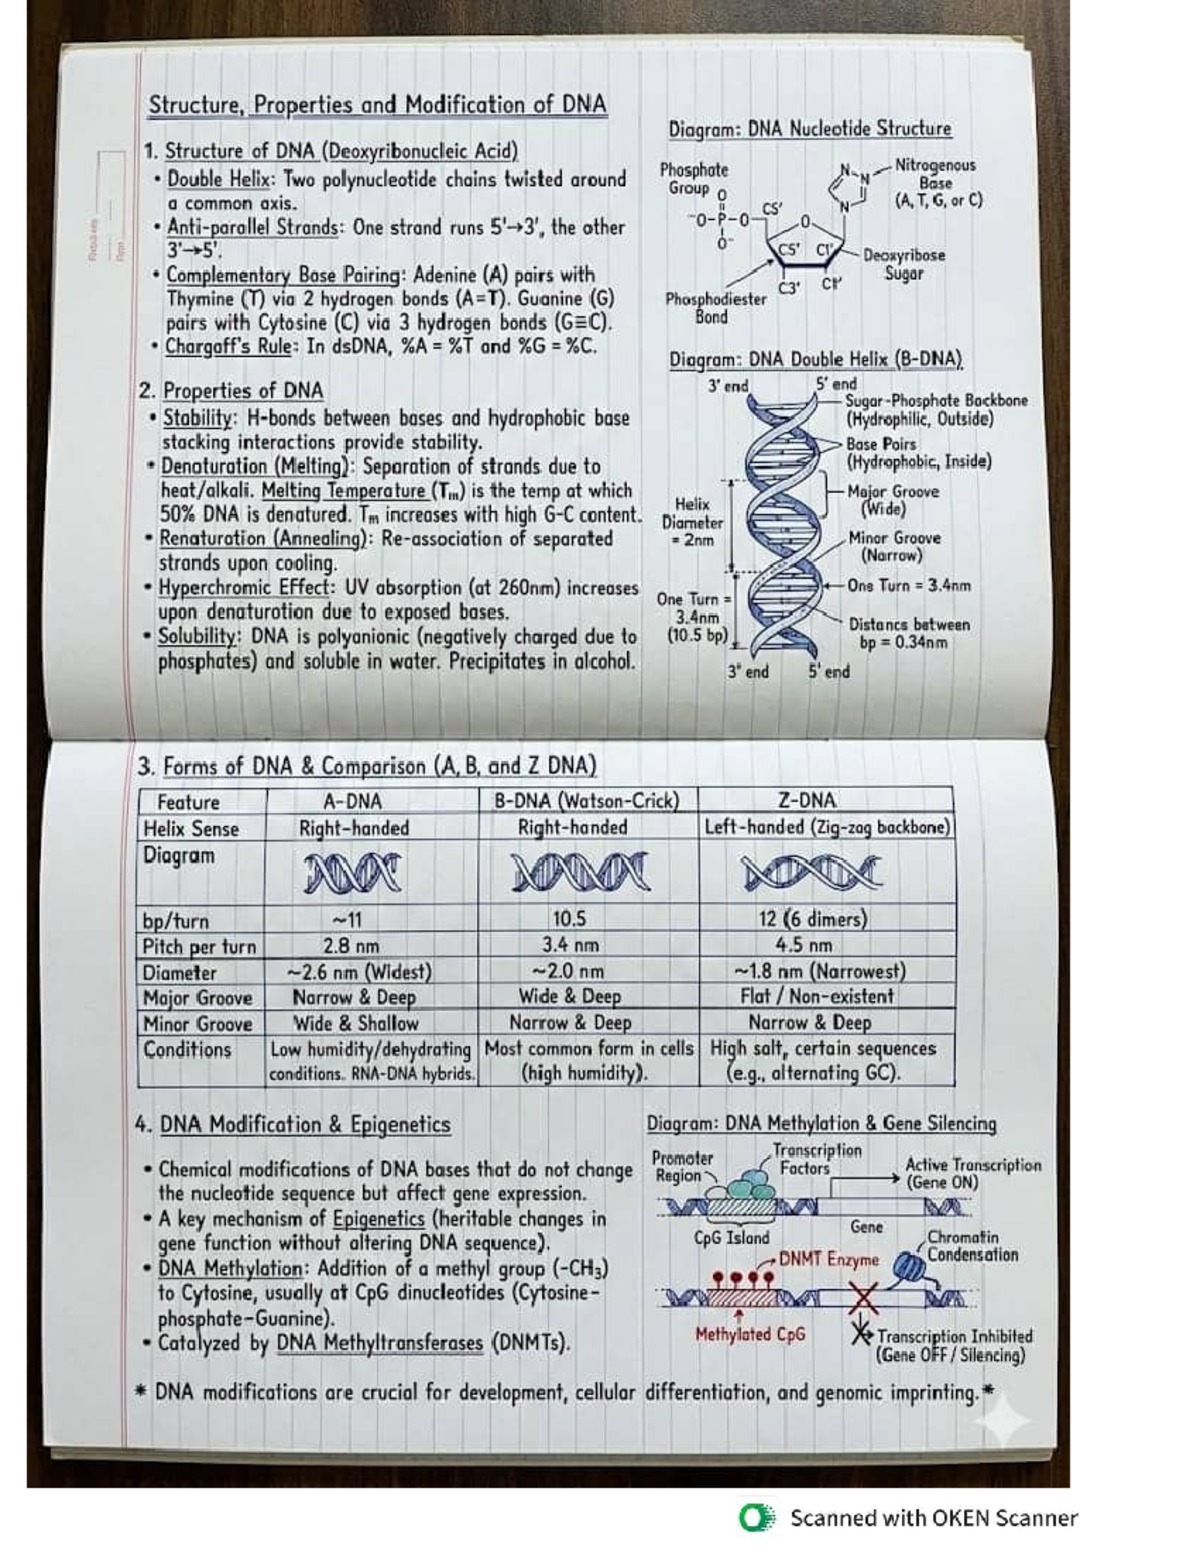 Structure, Properties and Modification of DNA
1. Structure of DNA (Deoxyribonucleic Acid)
• Double Helix: Two polynucleotide chains twisted around
a common axis.
• Anti-parallel Strands: One strand runs 5'→3', the other
3'→5'.
• Complementary Base Pairing: Adenine (A) pairs with
Thymine (T) via 2 hydrogen bonds (A=T). Guanine (G)
pairs with Cytosine (C) via 3 hydrogen bonds (G≡C).
• Chargaff's Rule: In dsDNA, %A = %T and %G = %C.
2. Properties of DNA
• Stability: H-bonds between bases and hydrophobic base
stacking interactions provide stability.
• Denaturation (Melting): Separation of strands due to
heat/alkali. Melting Temperature (Tm) is the temp at which
50% DNA is denatured. Tm increases with high G-C content.
• Renaturation (Annealing): Re-association of separated
strands upon cooling.
• Hyperchromic Effect: UV absorption (at 260nm) increases
upon denaturotion due to exposed bases.
• Solubility: DNA is polyanionic (negatively charged due to
phosphates) and soluble in water. Precipitates in alcohol.
Diagram: DNA Nucleotide Structure
Phosphate
Group
O
⁻O-P-O
O⁻
CS'
O
CS' Cl'
C3'
N N
N
Nitrogenous
Base
(A, T, G, or C)
Deoxyribose
Sugar
Phosphodiester
Bond
Diagram: DNA Double Helix (B-DNA)
3' end 5' end
Sugar-Phosphate Backbone
(Hydrophilic, Outside)
Base Pairs
(Hydrophobic, Inside)
Major Groove
(Wide)
Helix
Diameter
= 2nm
Minor Groove
(Narrow)
One Turn = 3.4nm
One Turn =
3.4nm
(10.5 bp)
Distancs between
bp = 0.34nm
3' end 5' end
3. Forms of DNA & Comparison (A, B, and Z DNA)
Feature A-DNA B-DNA (Watson-Crick) Z-DNA
Helix Sense Right-handed Right-handed Left-handed (Zig-zag backbone)
Diagram
bp/turn ~11 10.5 12 (6 dimers)
Pitch per turn 2.8 nm 3.4 nm 4.5 nm
Diameter ~2.6 nm (Widest) ~2.0 nm ~1.8 nm (Narrowest)
Major Groove Narrow & Deep Wide & Deep Flat / Non-existent
Minor Groove Wide & Shallow Narrow & Deep Narrow & Deep
Conditions Low humidity/dehydrating Most common form in cells High salt, certain sequences
conditions. RNA-DNA hybrids. (high humidity). (e.g., alternating GC).
4. DNA Modification & Epigenetics
• Chemical modifications of DNA bases that do not change
the nucleotide sequence but affect gene expression.
• A key mechanism of Epigenetics (heritable changes in
gene function without altering DNA sequence).
• DNA Methylation: Addition of a methyl group (-CH3)
to Cytosine, usually at CpG dinucleotides (Cytosine-
phosphate-Guanine).
• Catalyzed by DNA Methyltransferases (DNMTs).
Diagram: DNA Methylation & Gene Silencing
Promoter
Region
Transcription
Factors
Active Transcription
(Gene ON)
CpG Island
Gene
Chromatin
Condensation
DNMT Enzyme
Methylated CpG
Transcription Inhibited
(Gene OFF / Silencing)
* DNA modifications are crucial for development, cellular differentiation, and genomic imprinting.*
Scanned with OKEN Scanner